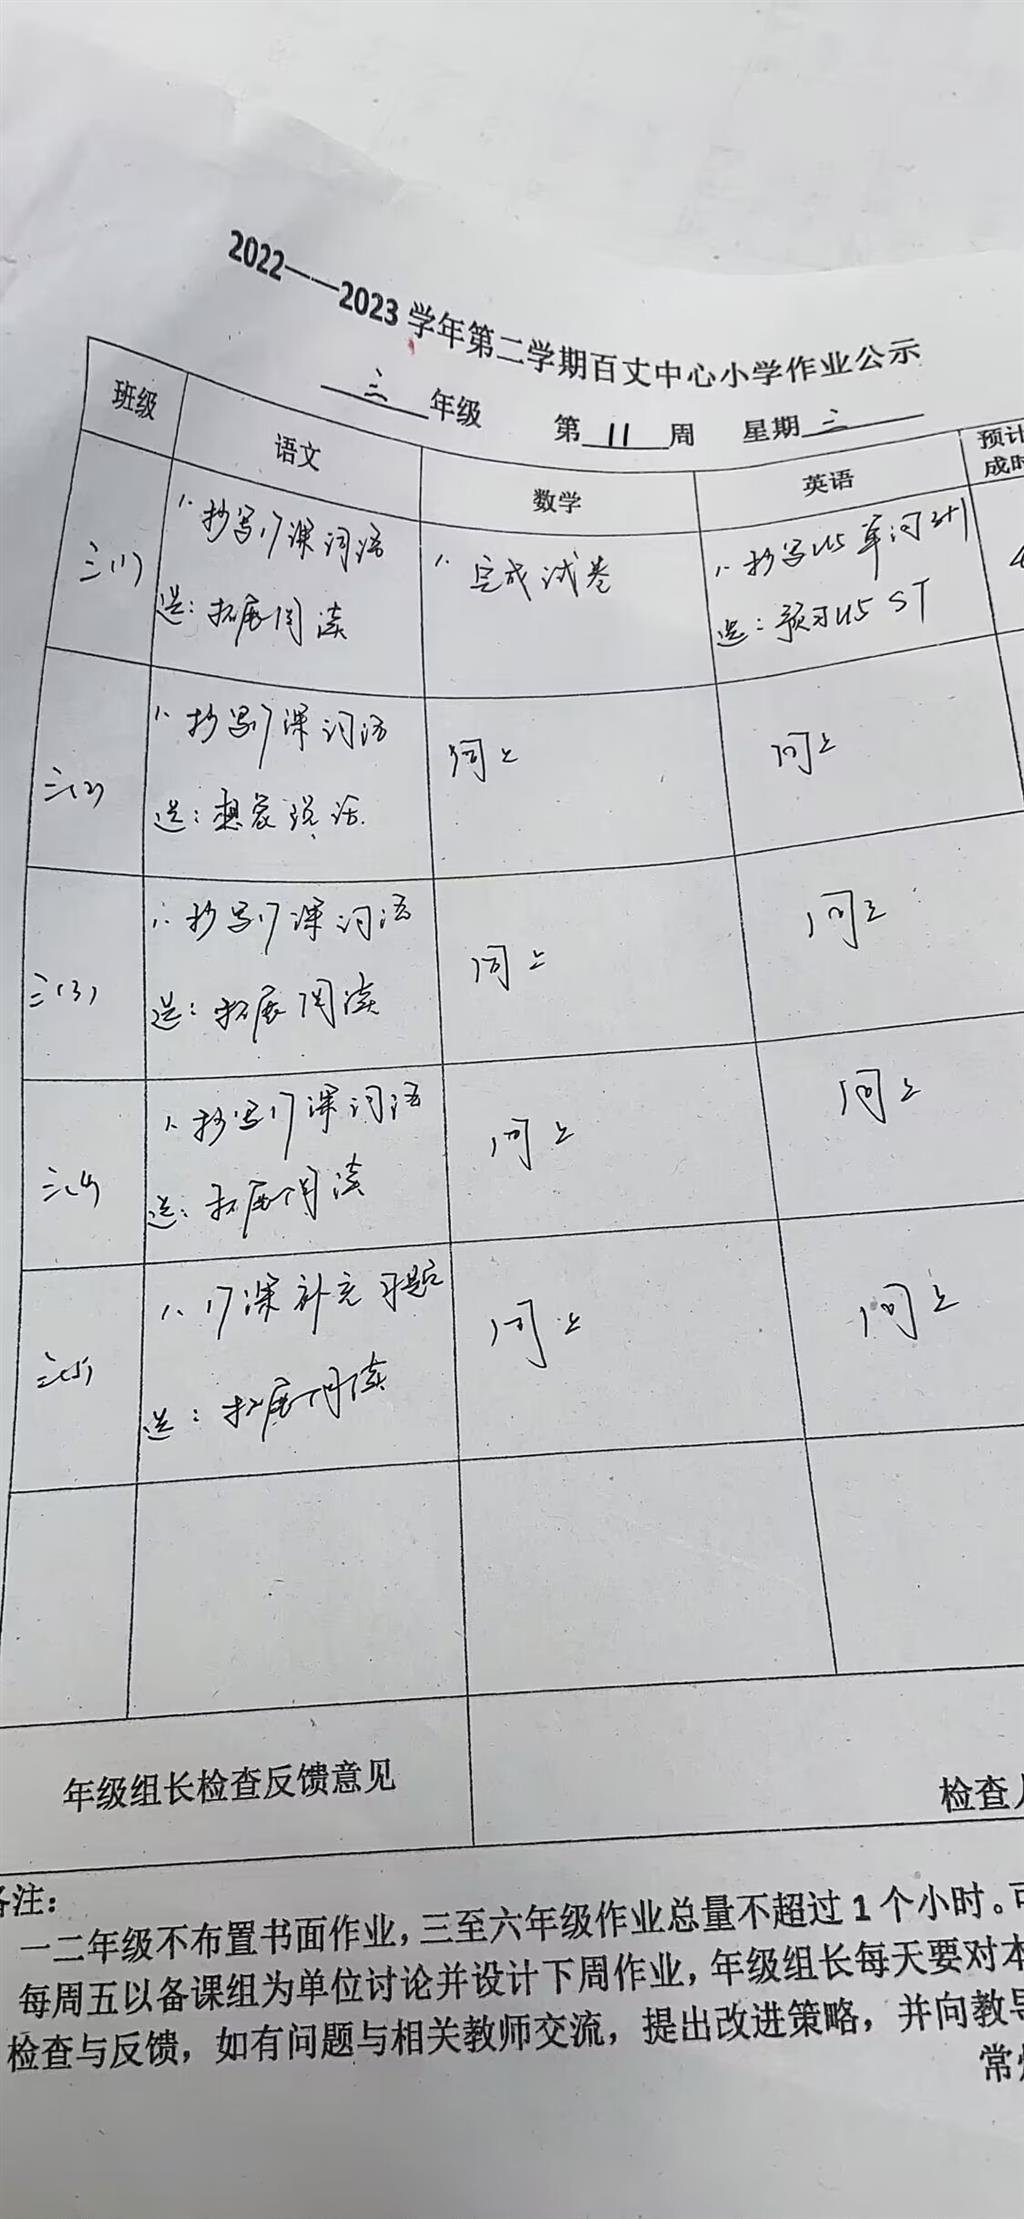 2022——2023学年第二学期百丈中心小学作业公示
三 年级 第 11 周 星期 三
班级 语文 数学 英语 预计
成时
三(1) 1、抄写17课词语 1、完成试卷 1、抄写U5单词3+1
选：拓展阅读 选：预习U5 ST
三(2) 1、抄写17课词语 同上 同上
选：想象说话
三(3) 1、抄写17课词语 同上 同上
选：拓展阅读
三(4) 1、抄写17课词语 同上 同上
选：拓展阅读
三(5) 1、17课补充习题 同上 同上
选：拓展阅读
年级组长检查反馈意见 检查人
备注：
一二年级不布置书面作业，三至六年级作业总量不超过1个小时。可
每周五以备课组为单位讨论并设计下周作业，年级组长每天要对本
检查与反馈，如有问题与相关教师交流，提出改进策略，并向教导
常州